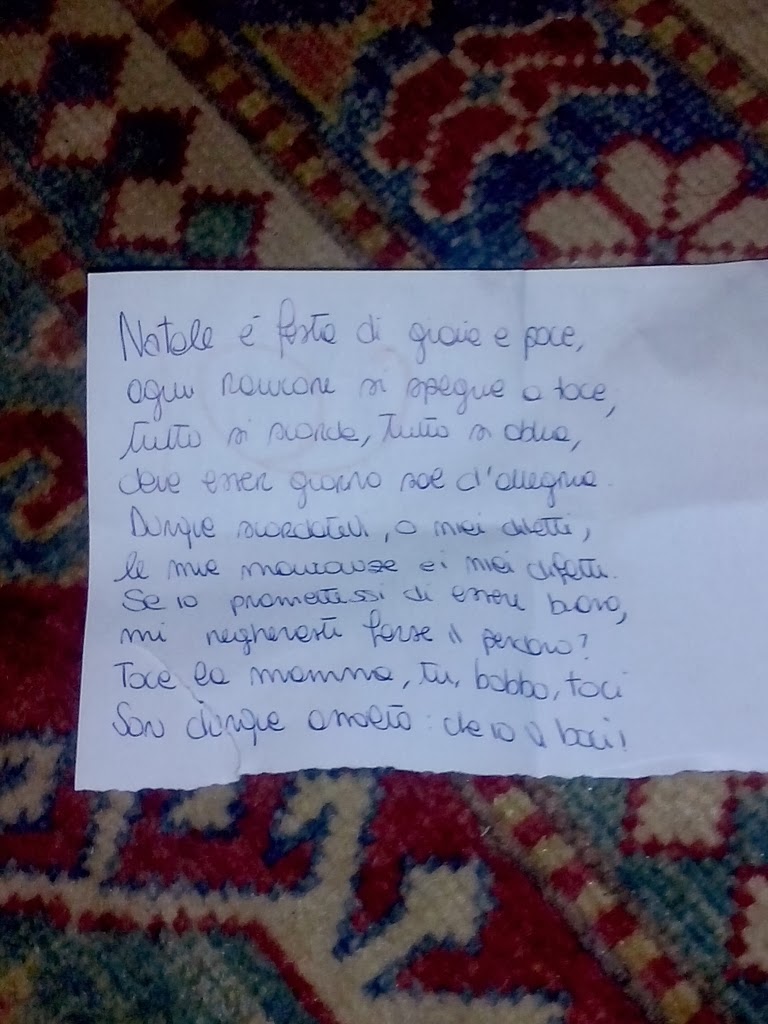 Natale é festa di gioia e pace,
ogni rancore si spegne o tace,
tutto si scorda, tutto si oblia,
deve esser giorno sol d'allegria.
Dunque scordatevi, o miei diletti,
le mie mancanze e i miei difetti.
Se io promettessi di essere buono,
mi neghereste forse il perdono?
Tace la mamma, tu, babbo, taci
Son dunque assolto: che io vi baci!